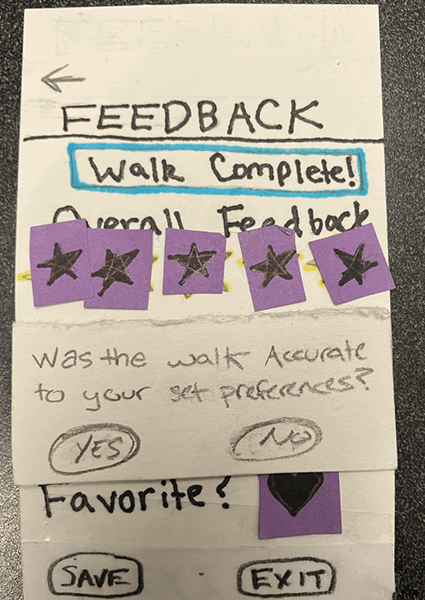 FEEDBACK
Walk Complete!
Overall Feedback
Was the walk Accurate
to your set preferences?
YES NO
Favorite?
SAVE EXIT